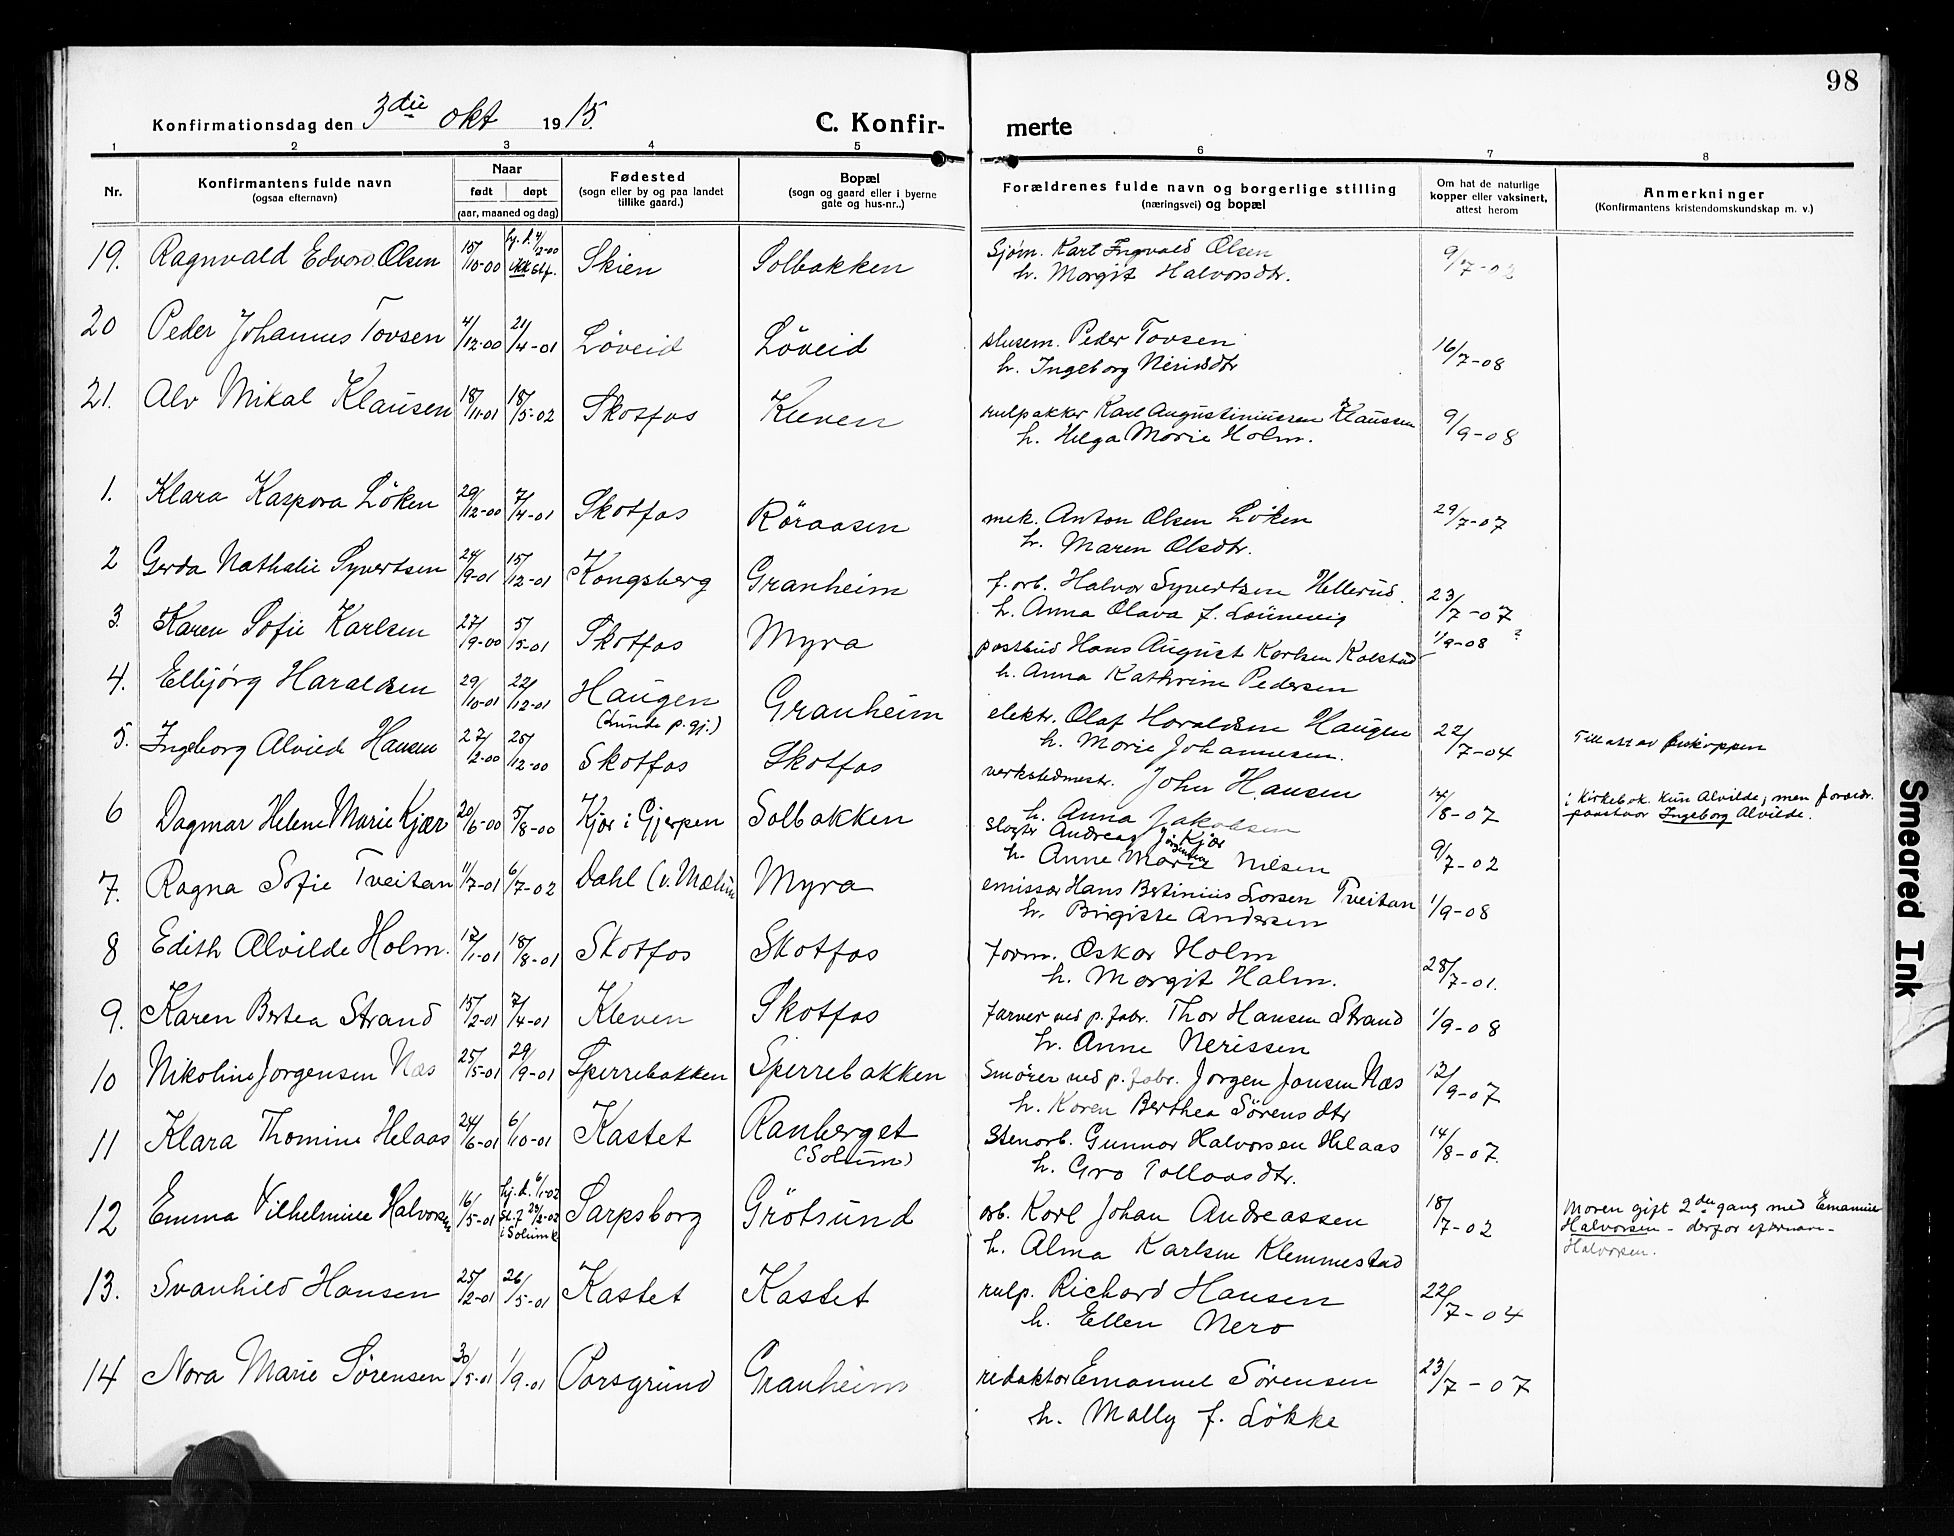 98
Konfirmationsdag den 3die okt 1915.
C. Konfir-merte
1 2 3 4 5 6 7 8
Nr.
Konfirmantens fulde navn
(ogsaa efternavn)
Naar
født døpt
(aar, maaned og dag)
Fødested
(sogn eller by og paa landet
tillike gaard.)
Bopæl
(sogn og gaard eller i byerne
gate og hus-nr..)
Forældrenes fulde navn og borgerlige stilling
(næringsvei) og bopæl
Om hat de naturlige
kopper eller vaksinert,
attest herom
Anmerkninger
(Konfirmantens kristendomskundskap m. v.)
19. Ragnvald Edvard Olsen 15/10-00 hj. d. 4/12-00 Skien Solbakken Sjøm. Karl Ingvald Olsen 9/7-02
h. Margit Halvorsdtr.
20 Peder Johannes Tovsen 4/12-00 21/4-01 Løveid Løveid slusem. Peder Tovsen 16/7-08
h. Ingeborg Nirisdtr
21. Alv Mikal Klausen 18/11-01 18/5-02 Skotfos Kleven rulpakker Karl Augustiniussen Klaussen 9/9-08
h. Helga Marie Holm.
1. Klara Kaspara Løken 29/12-00 7/4-01 Skotfos Røraasen mek. Anton Olsen Løken 29/7-07
h. Maren Olsdtr.
2 Gerda Nathalie Syvertsen 24/9-01 15/12-01 Kongsberg Granheim f. arb. Halvor Syvertsen Hellerud. 23/7-07
h. Anna Olava f. Launevig
3. Karen Sofie Karlsen 27/9-00 5/5-01 Skotfos Myra postbud Hans August Karlsen Kolstad 1/9-08 ?
h. Anna Kathrine Pedersen
4. Elbjørg Haraldsen 29/10-01 22/12-01 Haugen Granheim elektr. Olaf Haraldsen Haugen 22/7-04 Tillatt av biskoppen
(Lunde p. gj.) h. Marie Johannesen.
5. Ingeborg Alvilde Hansen 27/2-00 25/12-00 Skotfos Skotfos verkstedmestr. John Hansen 14/8-07 i kirkebok. kun Alvilde, men foreldr.
h. Anna Jakobsen paastaar Ingeborg Alvilde.
6 Dagmar Helene Marie Kjær 20/6-00 5/8-00 Kjær i Gjerpen Solbakken Slagtr Andreas Jørgensen Kjær 9/7-02
h. Anne Marie Nilsen
7. Ragna Sofie Tveitan 11/7-01 6/7-02 Dahl (v. Melum Myra emissær Hans Bertinius Larsen Tveitan 1/9-08
h. Birgitte Andersen
8 Edith Alvilde Holm. 17/1-01 18/8-01 Skotfos Skotfos form. Oskar Holm 28/7-01.
h. Margit Halm.
9. Karen Bertea Strand 15/2-01 7/4-01 Kleven Skotfos farver ved p. fabr. Thor Hansen Strand 1/9-08
h. Anne Nerissen
10 Nikoline Jorgensen Næs 25/5-01 29/9-01 Sperrebakken Sperrebakken Smører ved p. fabr. Jorgen Jansen Næs 12/9-07
h. Karen Berthea Sørensdtr
11 Klara Thomine Helaas 24/6-01 6/10-01 Kastet Ranberget Stenarb. Gunnar Halvorsen Helaas 14/8-07.
(Solum) h. Gro Tollaasdtr.
12 Emma Vilhelmine Halvorsen 16/5-01 hj. d. 6/1-02 Sarpsborg Grötsund arb. Karl Johan Andreassen 18/7-02 Moren gift 2den gang med Emanuel
St. f 23/2-02 i Solum k h. Alma Karlsen Klemmestad Halvorsen - derfor efternavn-
Halvorsen.
13. Svanhild Hansen 25/2-01 26/5-01 Kastet Kastet rulp. Richard Hansen 22/7-04
h. Ellen Nero
14 Nora Marie Sørensen 30/5-01 1/9-01 Porsgrund Granheim redaktør Emanuel Sörensen 23/7-07
h. Mally f. Løkke
Smeared Ink